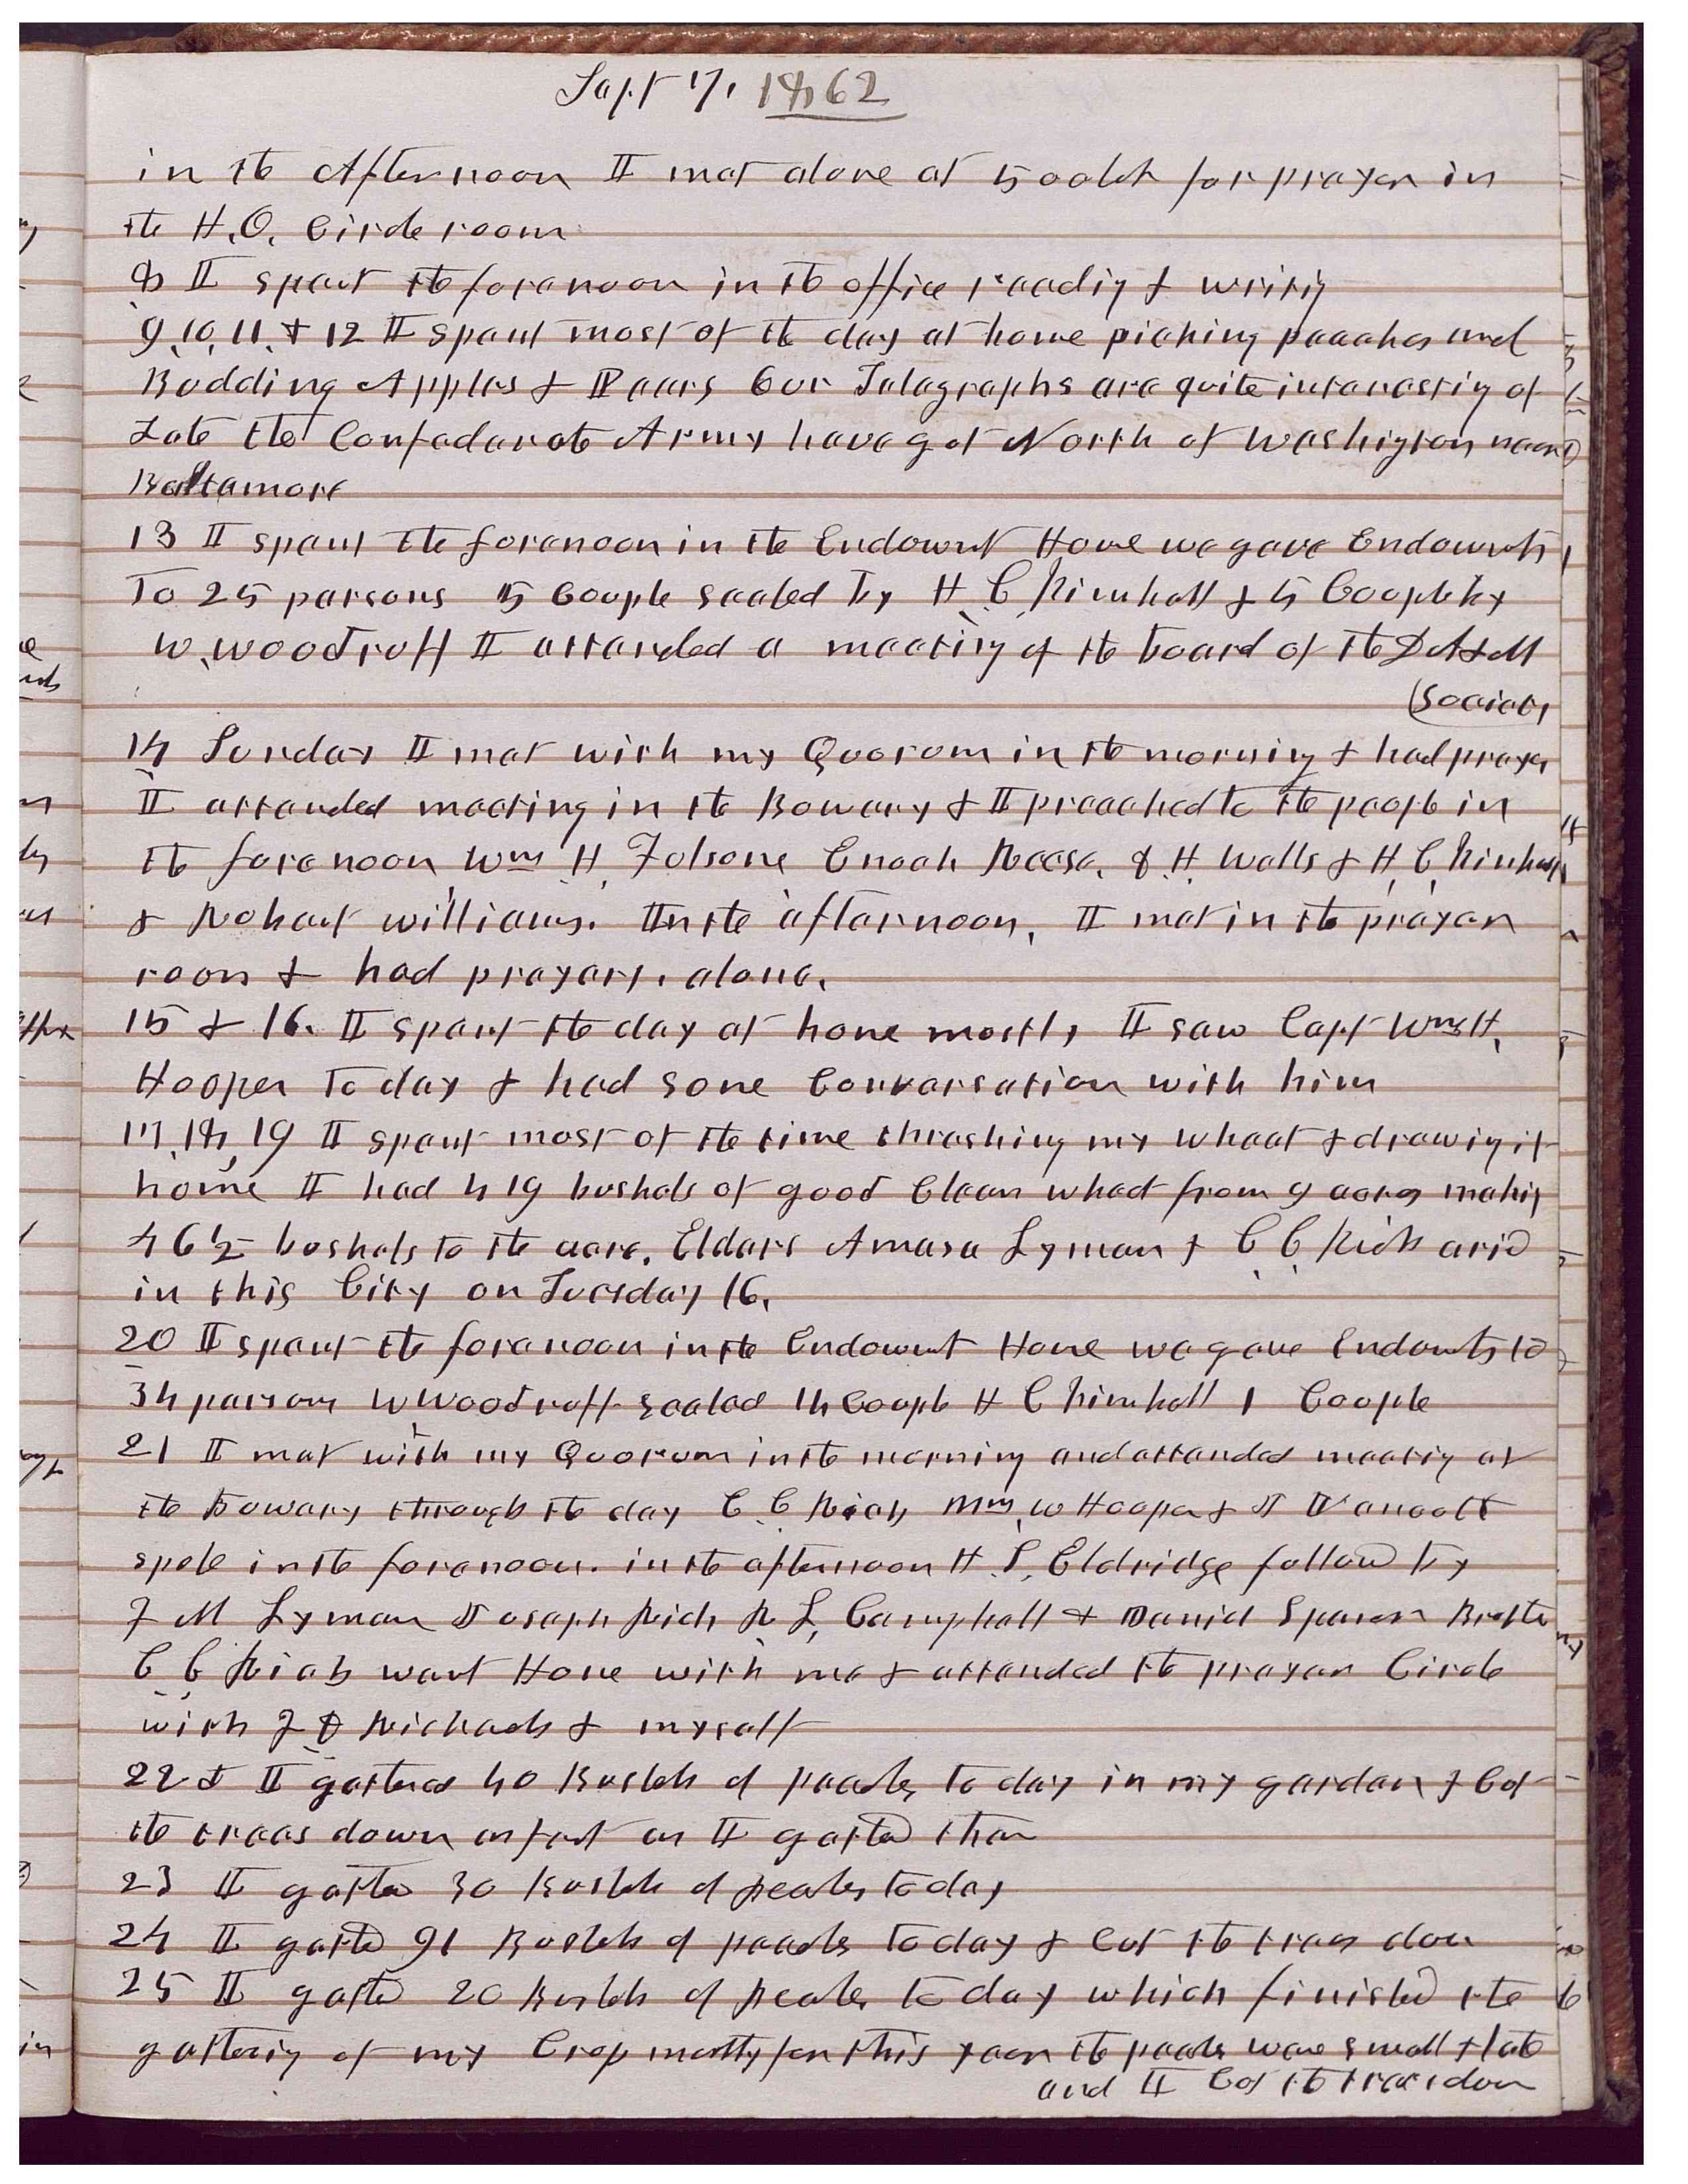 Sept 7, 1862
in the Afternoon I met alone at 5 oclok for prayer in
the H. O. Circle room
8 I spent the forenoon in the office reading & writing
9, 10, 11, & 12 I spent most of the day at home picking peaches and
Budding Apples & Pears Our Telegraphs are quite interesting of
Late the Confederate Army have got North of Washington near
Baltamore
13 I spent the forenoon in the Endowmt House we gave Endowmts
to 25 persons 5 Couple sealed by H C Kimball & 5 Couple by
W. Woodruff I attended a meeting of the board of the D A & M
(Society
14 Sunday I met with my Quorum in the morning & had prayer
I attended meeting in the Bowery & I preached to the people in
the forenoon Wm H. Folsome Enoch Reese, & H. Walls & H. C. Kimball
& Robert Williams. In the afternoon, I met in the prayer
room & had prayers, alone.
15 & 16. I spent the day at home mostly I saw Capt Wm H.
Hooper to day & had some Conversation with him
17, 18, 19 I spent most of the time threshing my wheat & drawing it
home I had 419 bushels of good Clean wheat from 9 acres making
46½ bushels to the acre. Elders Amasa Lyman & C C Rich arid
in this City on Tuesday 16.
20 I spent the forenoon in the Endowmt House we gave Endowmts to
34 persons W Woodruff sealed 14 Couple H C Kimball 1 Couple
21 I met with my Quorum in the morning and attended meeting at
the Bowery through the day C. C. Rich, Wm, W Hooper & J Vancott
spoke in the forenoon. in the afternoon H. S. Eldridge followed by
F M Lyman Joseph Rich R L, Campbell & Daniel Spencer Brother
C C Rich went Home with me & attended the prayer Circle
with F D Richards & myself
22 & I gathered 40 Bushels of peaches to day in my garden & Cut
the trees down as fast as I gathered them
23 I gathered 30 Bushels of peaches to day
24 I gathered 91 Bushels of peaches to day & Cut the trees down
25 I gathered 20 Bushels of peaches to day which finished the
gathering of my Crop mostly for this year the peaches were small & late
and I Cut the trees down